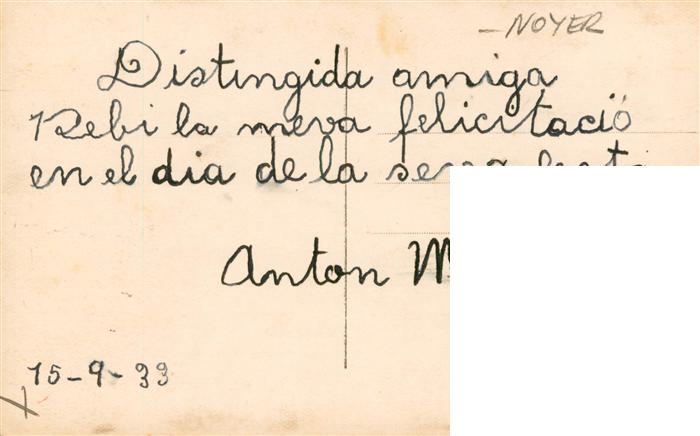 - NOYER
Distingida amiga
Rebi la meva felicitació
en el dia de la seva festa
Anton M
15-9-33